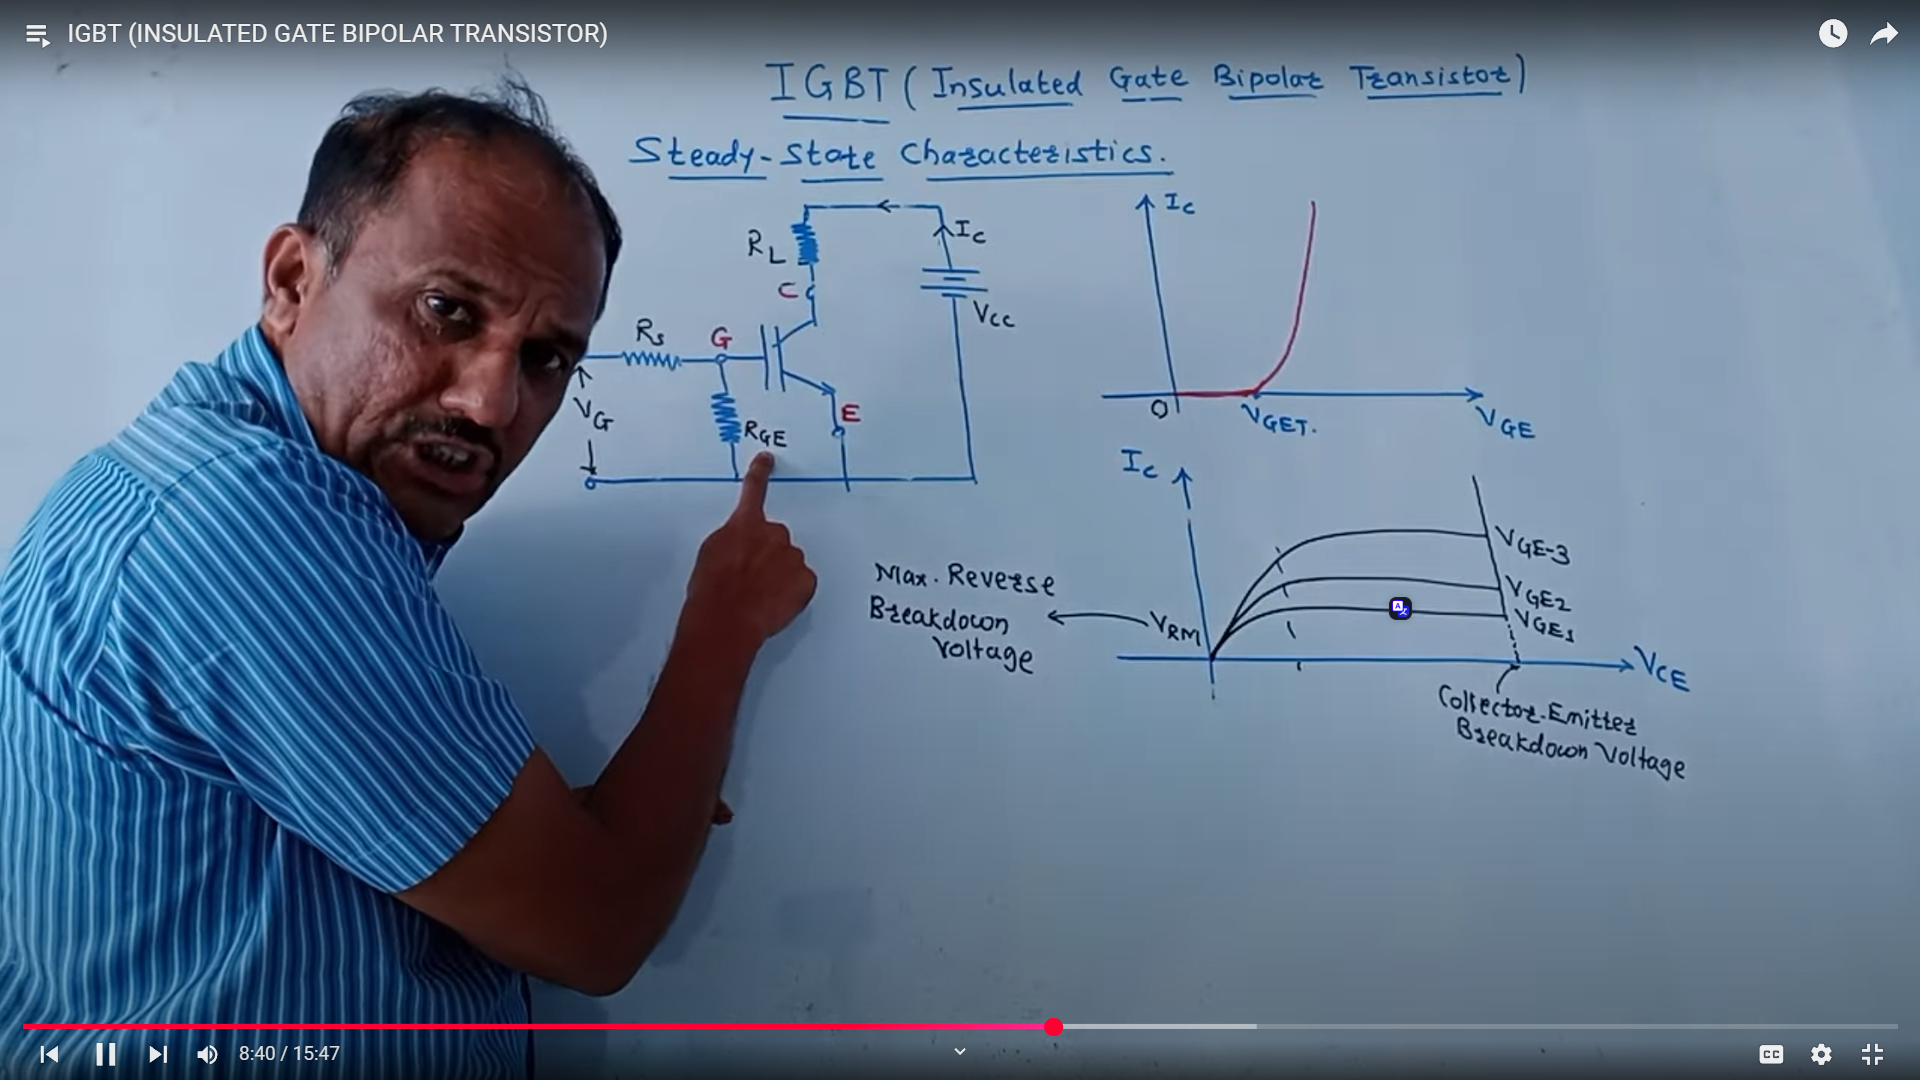 IGBT (INSULATED GATE BIPOLAR TRANSISTOR)
IGBT (Insulated Gate Bipolar Transistor)
Steady-State Characteristics.
RL
IC
C
VCC
Rs
G
VG
RGE
E
IC
O
VGET.
VGE
IC
VGE-3
VGE2
VGE1
VRM
Max. Reverse
Breakdown
Voltage
VCE
Collector-Emitter
Breakdown Voltage
8:40 / 15:47
CC